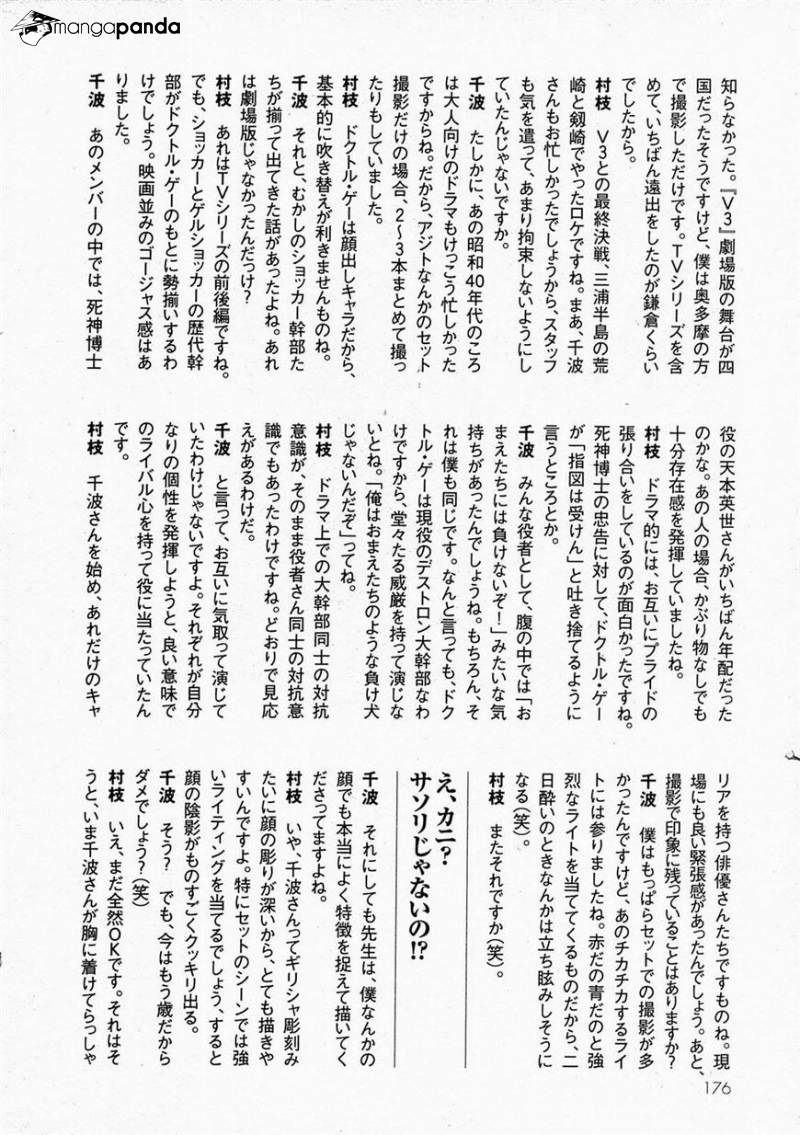 mangapanda
知らなかった。『V3』劇場版の舞台が四
国だったそうですけど、僕は奥多摩の方
で撮影しただけです。TVシリーズを含
めて、いちばん遠出をしたのが鎌倉くらい
でしたから。
村枝　V3との最終決戦、三浦半島の荒
崎と剱崎でやったロケですね。まあ、千波
さんもお忙しかったでしょうから、スタッフ
も気を遣って、あまり拘束しないようにし
ていたんじゃないですか。
千波　たしかに、あの昭和40年代のころ
は大人向けのドラマもけっこう忙しかった
ですからね。だから、アジトなんかのセット
撮影だけの場合、2〜3本まとめて撮っ
たりもしていました。
村枝　ドクトル・ゲーは顔出しキャラだから、
基本的に吹き替えが利きませんものね。
千波　それと、むかしのショッカー幹部た
ちが揃って出てきた話があったよね。あれ
は劇場版じゃなかったんだっけ?
村枝　あれはTVシリーズの前後編ですね。
でも、ショッカーとゲルショッカーの歴代幹
部がドクトル・ゲーのもとに勢揃いするわ
けでしょう。映画並みのゴージャス感はあ
りました。
千波　あのメンバーの中では、死神博士
役の天本英世さんがいちばん年配だった
のかな。あの人の場合、かぶり物なしでも
十分存在感を発揮していましたね。
村枝　ドラマ的には、お互いにプライドの
張り合いをしているのが面白かったですね。
死神博士の忠告に対して、ドクトル・ゲー
が「指図は受けん」と吐き捨てるように
言うところとか。
千波　みんな役者として、腹の中では「お
まえたちには負けないぞ!」みたいな気
持ちがあったんでしょうね。もちろん、そ
れは僕も同じです。なんと言っても、ドク
トル・ゲーは現役のデストロン大幹部なわ
けですから、堂々たる威厳を持って演じな
いとね。「俺はおまえたちのような負け犬
じゃないんだぞ」ってね。
村枝　ドラマ上での大幹部同士の対抗
意識が、そのまま役者さん同士の対抗意
識でもあったわけですね。どおりで見応
えがあるわけだ。
千波　と言って、お互いに気取って演じて
いたわけじゃないですよ。それぞれが自分
なりの個性を発揮しようと、良い意味で
のライバル心を持って役に当たっていたん
です。
村枝　千波さんを始め、あれだけのキャ
リアを持つ俳優さんたちですものね。現
場にも良い緊張感があったんでしょう。あと、
撮影で印象に残っていることはありますか?
千波　僕はもっぱらセットでの撮影が多
かったんですけど、あのチカチカするライ
トには参りましたね。赤だの青だのと強
烈なライトを当ててくるものだから、二
日酔いのときなんかは立ち眩みしそうに
なる(笑)。
村枝　またそれですか(笑)。
え、カニ?
サソリじゃないの!?
千波　それにしても先生は、僕なんかの
顔でも本当によく特徴を捉えて描いてく
ださってますよね。
村枝　いや、千波さんってギリシャ彫刻み
たいに顔の彫りが深いから、とても描きや
すいんですよ。特にセットのシーンでは強
いライティングを当てるでしょう、すると
顔の陰影がものすごくクッキリ出る。
千波　そう?　でも、今はもう歳だから
ダメでしょう?(笑)
村枝　いえ、まだ全然OKです。それはそ
うと、いま千波さんが胸に着けてらっしゃ
176